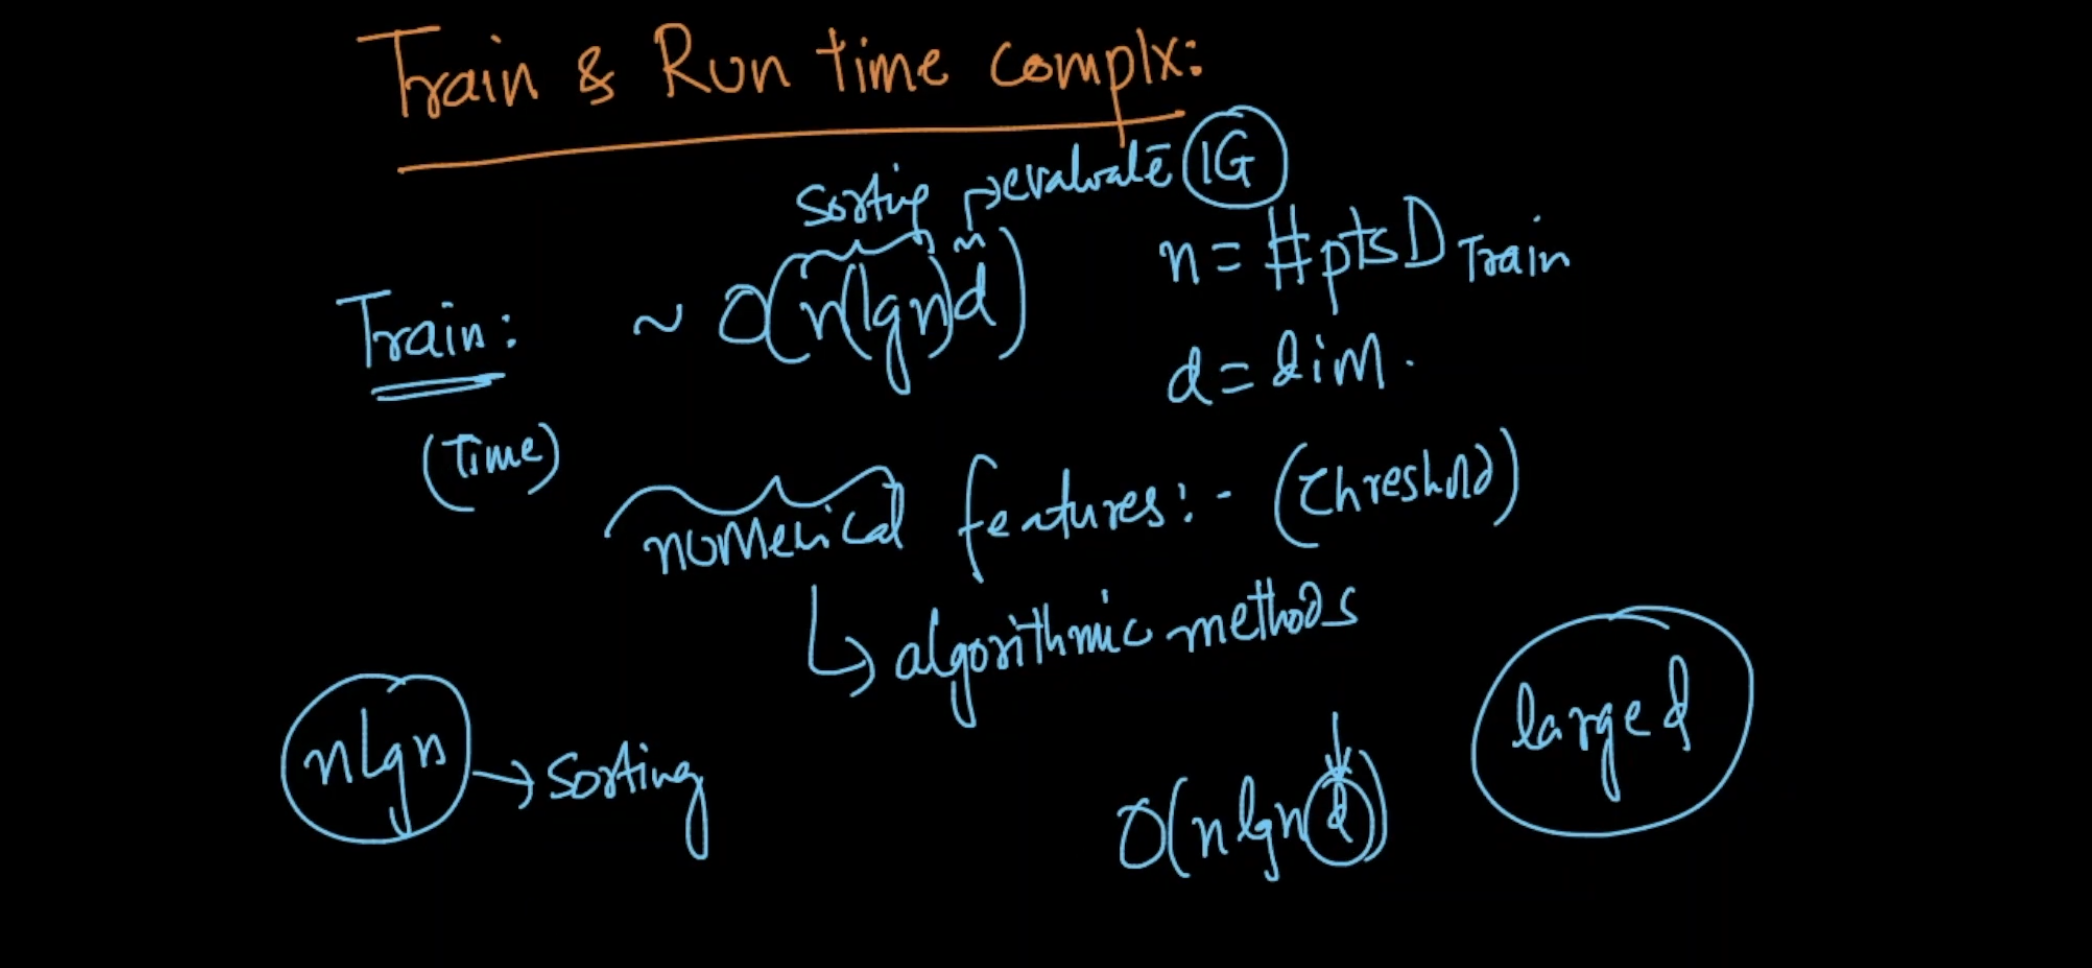 Train & Run time complx:
sorting → evaluate IG
Train: ~ O(n(lgn)d) n = #pts D Train
d = dim.
(Time)
numerical features:- (threshold)
↳ algorithmic methods
large d
nlgn → sorting
O(n lgn d)